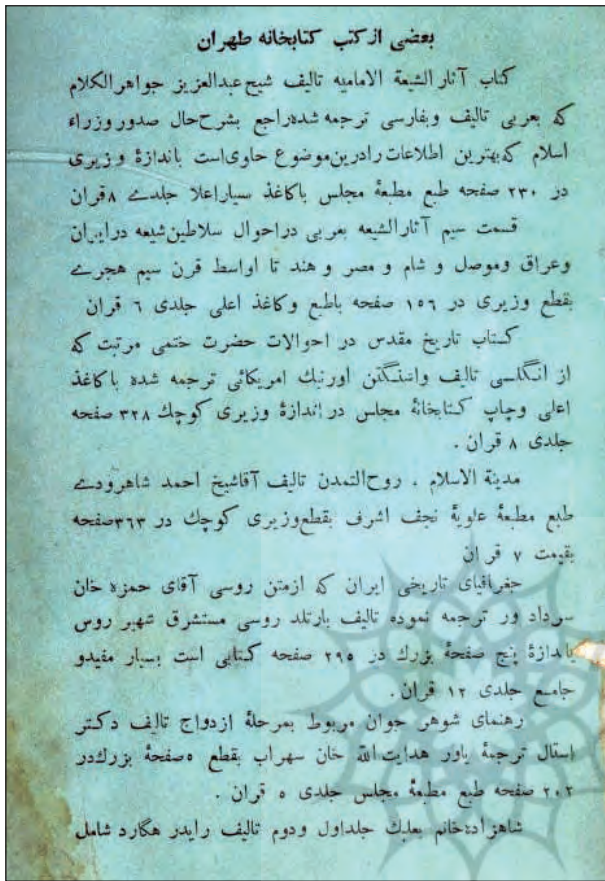 بعضی از کتب کتابخانه طهران
کتاب آثار الشیعة الامامیه تالیف شیخ عبدالعزیز جواهرالکلام
که بعربی تالیف وبفارسی ترجمه شده راجع بشرح حال صدور وزراء
اسلام که بهترین اطلاعات را درین موضوع حاوی است باندازهٔ وزیری
در ۲۳۰ صفحه طبع مطبعهٔ مجلس باکاغذ بسیاراعلا جلدے ۸ قران
قسمت سیم آثارالشیعه بعربی در احوال سلاطین شیعه درایران
وعراق وموصل و شام و مصر و هند تا اواسط قرن سیم هجرے
بقطع وزیری در ۱۵۶ صفحه باطبع وکاغذ اعلی جلدی ٦ قران
کتاب تاریخ مقدس در احوالات حضرت ختمی مرتبت که
از انگلسی تالیف واشنگتن اورنیك امریکائی ترجمه شده باکاغذ
اعلی وچاپ کتابخانهٔ مجلس در اندازهٔ وزیری کوچك ۳۲۸ صفحه
جلدی ۸ قران .
مدینة الاسلام . روح التمدن تالیف آقاشیخ احمد شاهرودے
طبع مطبعهٔ علویهٔ نجف اشرف بقطع وزیری کوچك در ۳٦۳ صفحه
بقیمت ۷ قران
جغرافیای تاریخی ایران که ازمتن روسی آقای حمزه خان
سرداد ور ترجمه نموده تالیف بارتلد روسی مستشرق شهیر روس
باندازهٔ پنج صفحهٔ بزرك در ۲۹۵ صفحه کتابی است بسیار مفیدو
جامع جلدی ۱۲ قران .
رهنمای شوهر جوان مربوط بمرحلهٔ ازدواج تالیف دکتر
استال ترجمهٔ یاور هدایت الله خان سهراب بقطع ۵ صفحهٔ بزرك در
۲۰۲ صفحه طبع مطبعهٔ مجلس جلدی ۵ قران .
شاهزاده خانم بعلبك جلداول ودوم تالیف رایدر هگارد شامل